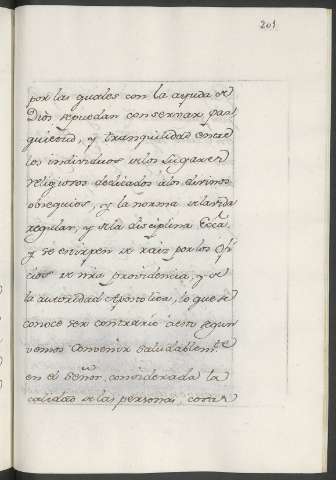 201
por las quales con la ayuda de
Dios se puedan conservar paz,
quietud, y tranquilidad entre
los individuos de los Lugares
religiosos dedicados à los divinos
obsequios, y la norma de la vida
regular, y de la disciplina Ecca.
y se extirpen de raiz por los Ofi
cios de nra providencia, y de
la autoridad Apostolica, lo que se
conoce ser contrario à esto segun
vemos convenir saludablemte.
en el Señor, considerada la
calidad de las personas, cosas